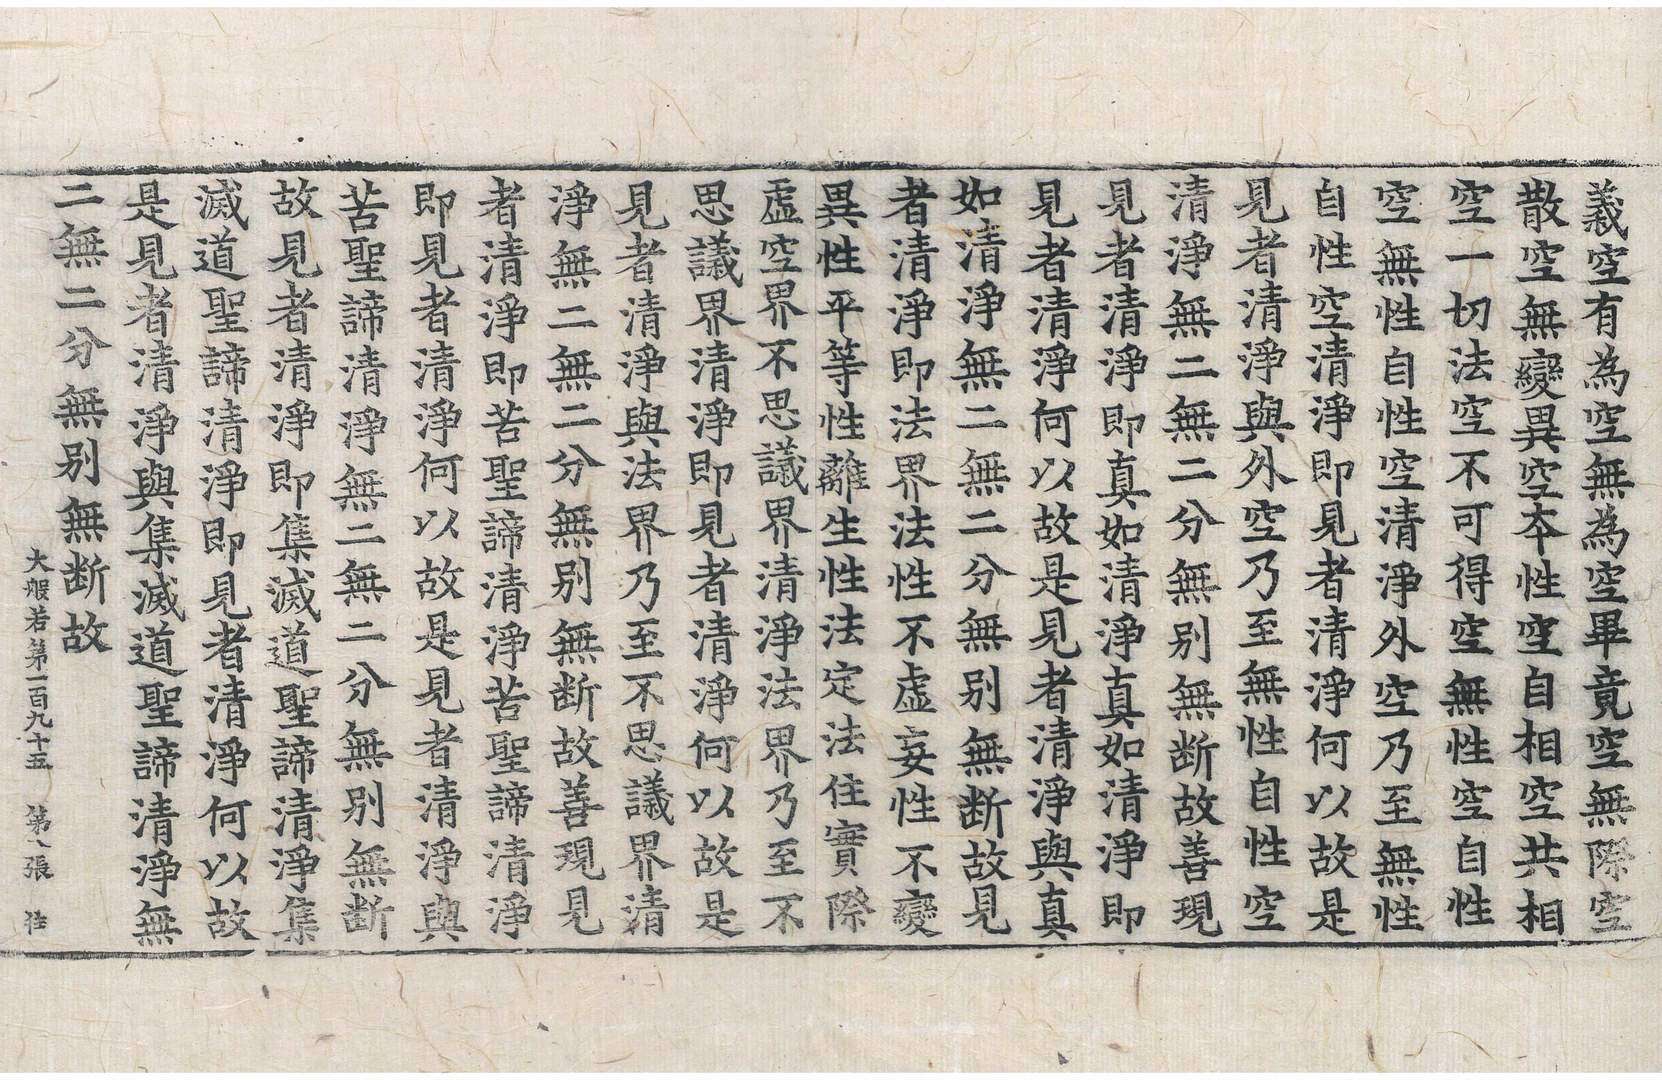 義空有為空無為空畢竟空無際空
散空無變異空本性空自相空共相
空一切法空不可得空無性空自性
空無性自性空清淨外空乃至無性
自性空清淨即見者清淨何以故是
見者清淨與外空乃至無性自性空
清淨無二無二分無别無断故善現
見者清淨即真如清淨真如清淨即
見者清淨何以故是見者清淨與真
如清淨無二無二分無别無断故見
者清淨即法界法性不虛妄性不變
異性平等性離生性法定法住實際
虛空界不思議界清淨法界乃至不
思議界清淨即見者清淨何以故是
見者清淨與法界乃至不思議界清
淨無二無二分無别無断故善現見
者清淨即苦聖諦清淨苦聖諦清淨
即見者清淨何以故是見者清淨與
苦聖諦清淨無二無二分無别無断
故見者清淨即集滅道聖諦清淨集
滅道聖諦清淨即見者清淨何以故
是見者清淨與集滅道聖諦清淨無
二無二分無别無断故
大般若第一百九十五 第八張